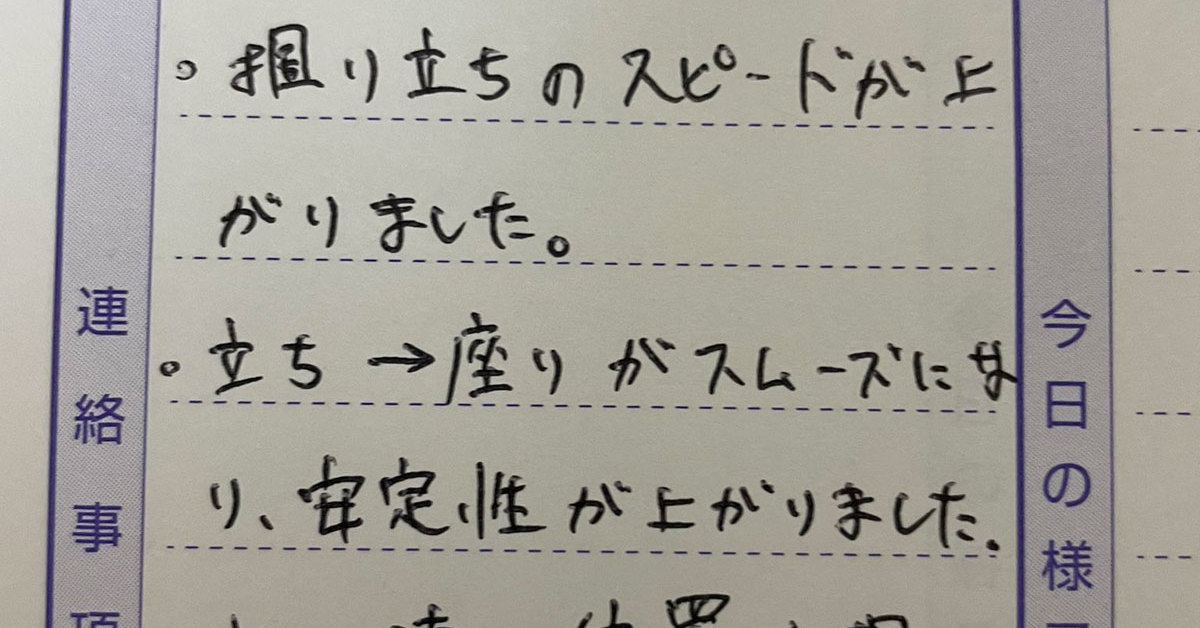 。掴り立ちのスピードが上
がりました。
。立ち→座りがスムーズにな
り、安定性が上がりました。
連絡事項
今日の様